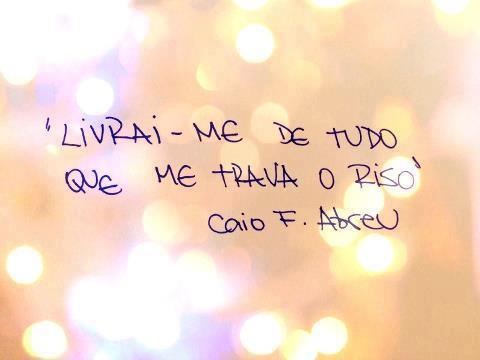 "LiVRAi-ME DE TUDO
QUE ME TRAVA O RISO"
Caio F. Abreu